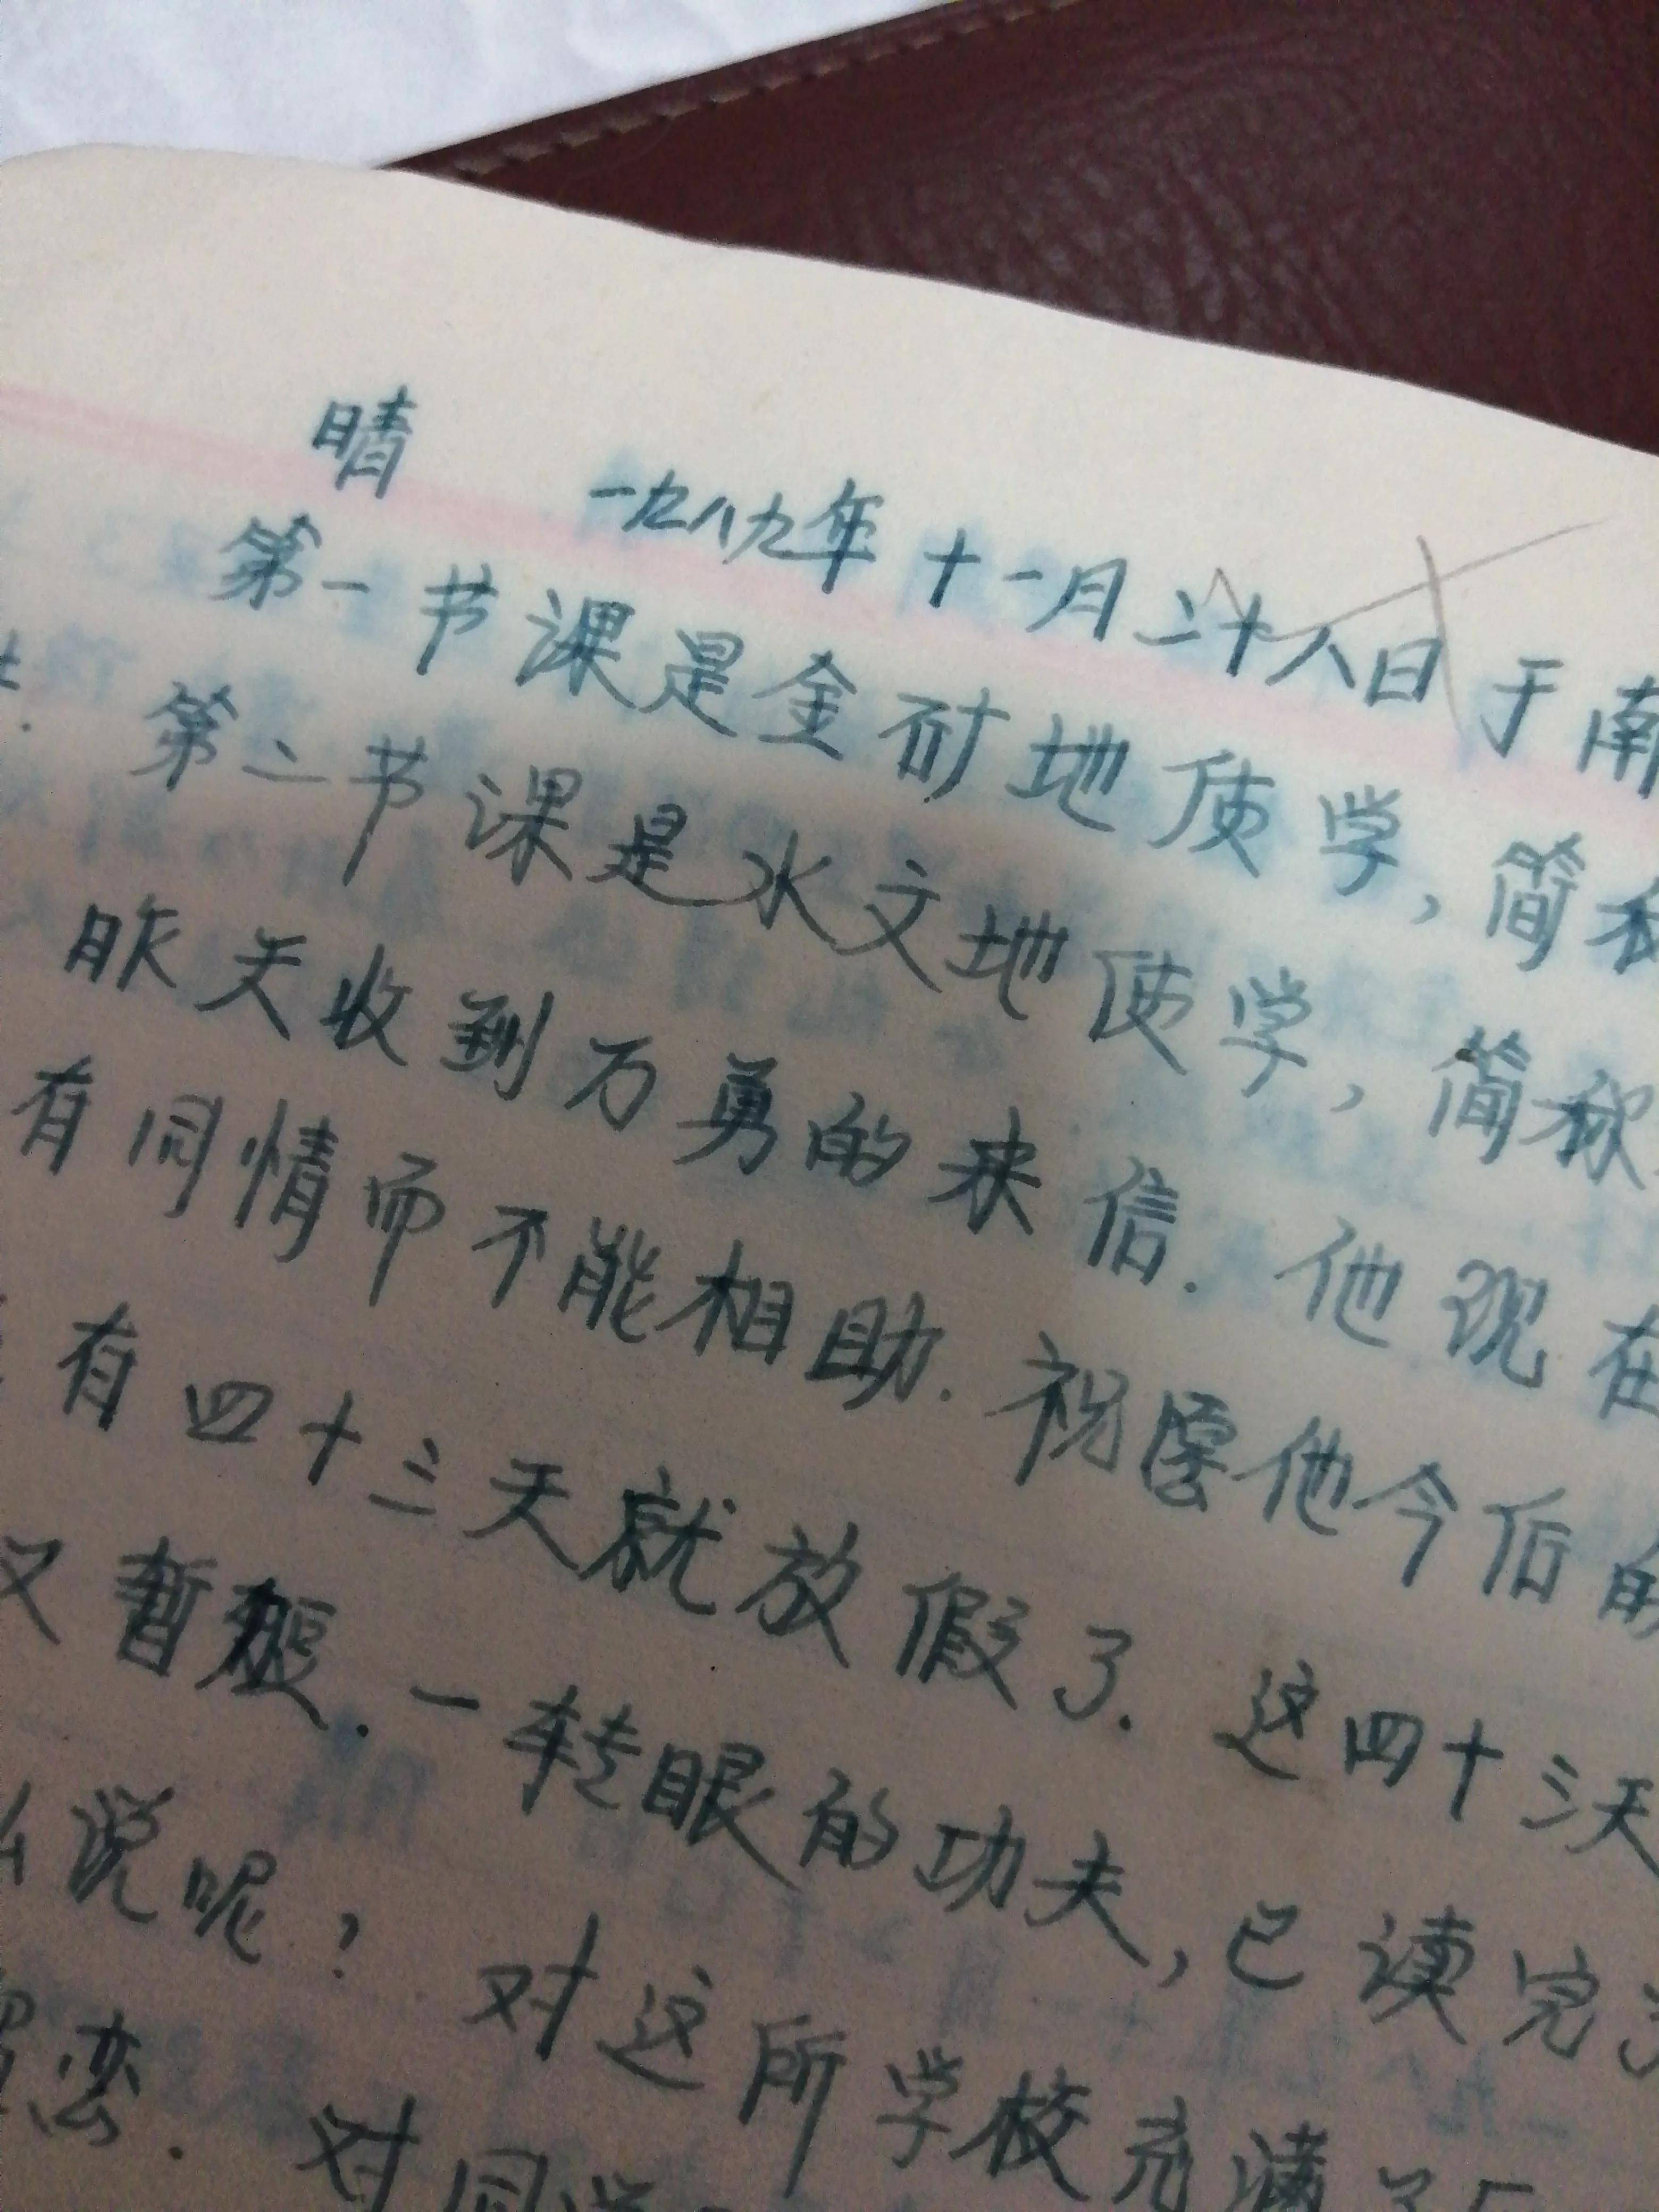 晴 一九八九年十一月二十八日于南
第一节课是金矿地质学,简称
第二节课是水文地质学,简称
昨天收到万勇的来信.他现在
有同情而不能相助.祝愿他今后的
有四十三天就放假了.这四十三天
又暂短.一转眼的功夫,已读完
么说呢?对这所学校充满了
恋.对同学